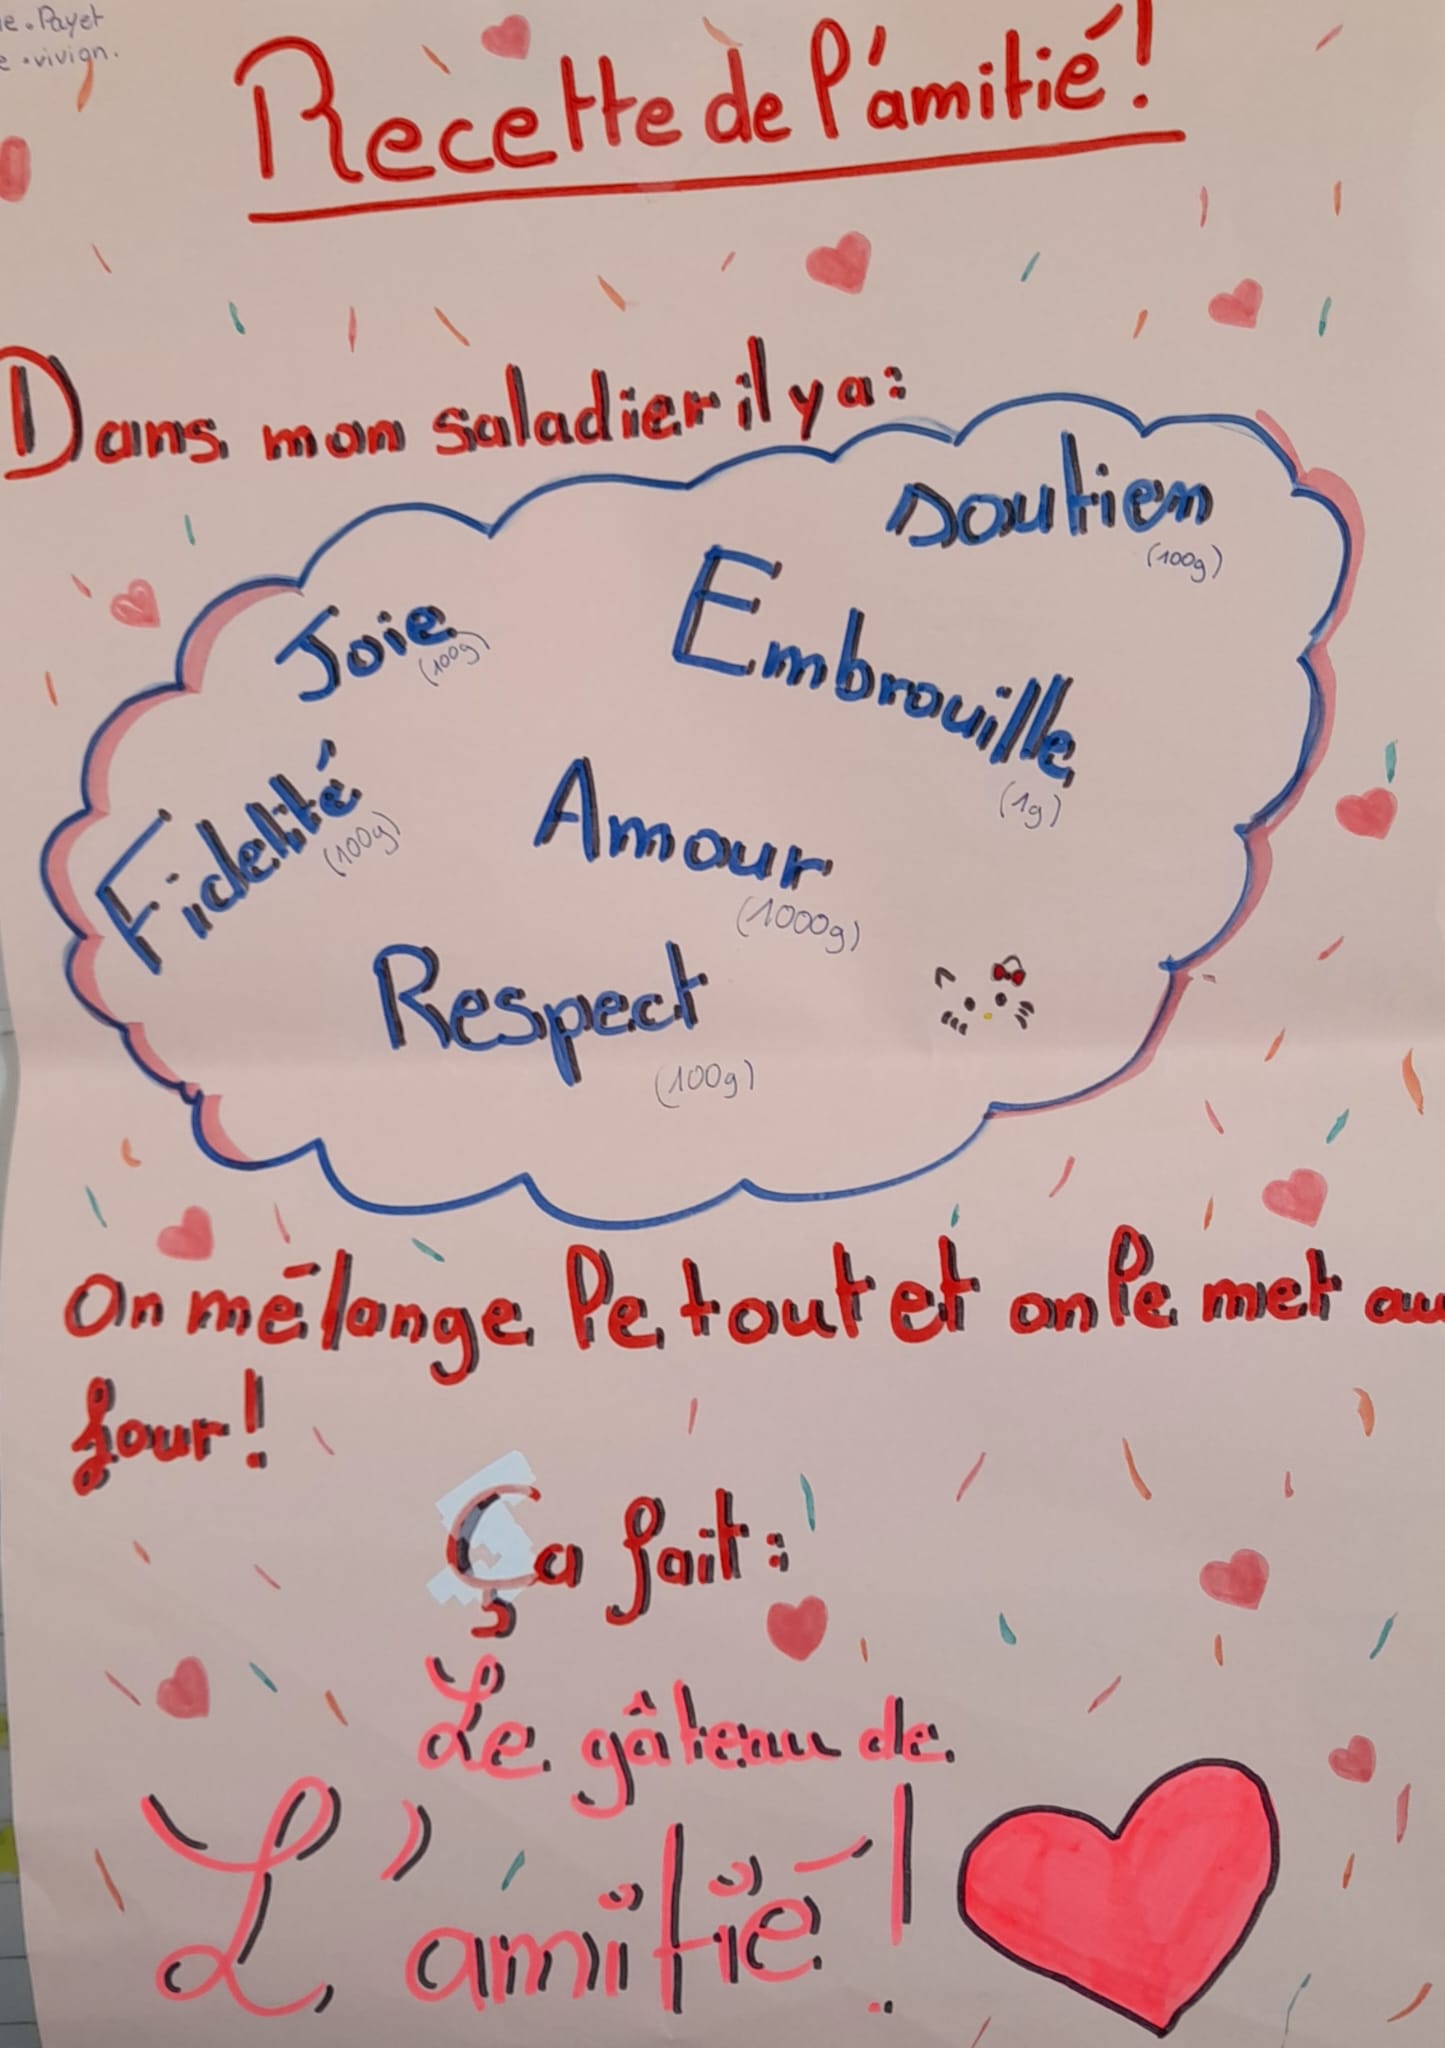 Payet
vivian.
Recette de l'amitié !
Dans mon saladier il y a :
soutien
(100g)
Joie
(100g)
Embrouille
(1g)
Fidelité
(100g)
Amour
(1000g)
Respect
(100g)
On mélange le tout et on le met au
four !
Ça fait :
Le gâteau de
L'amitié !